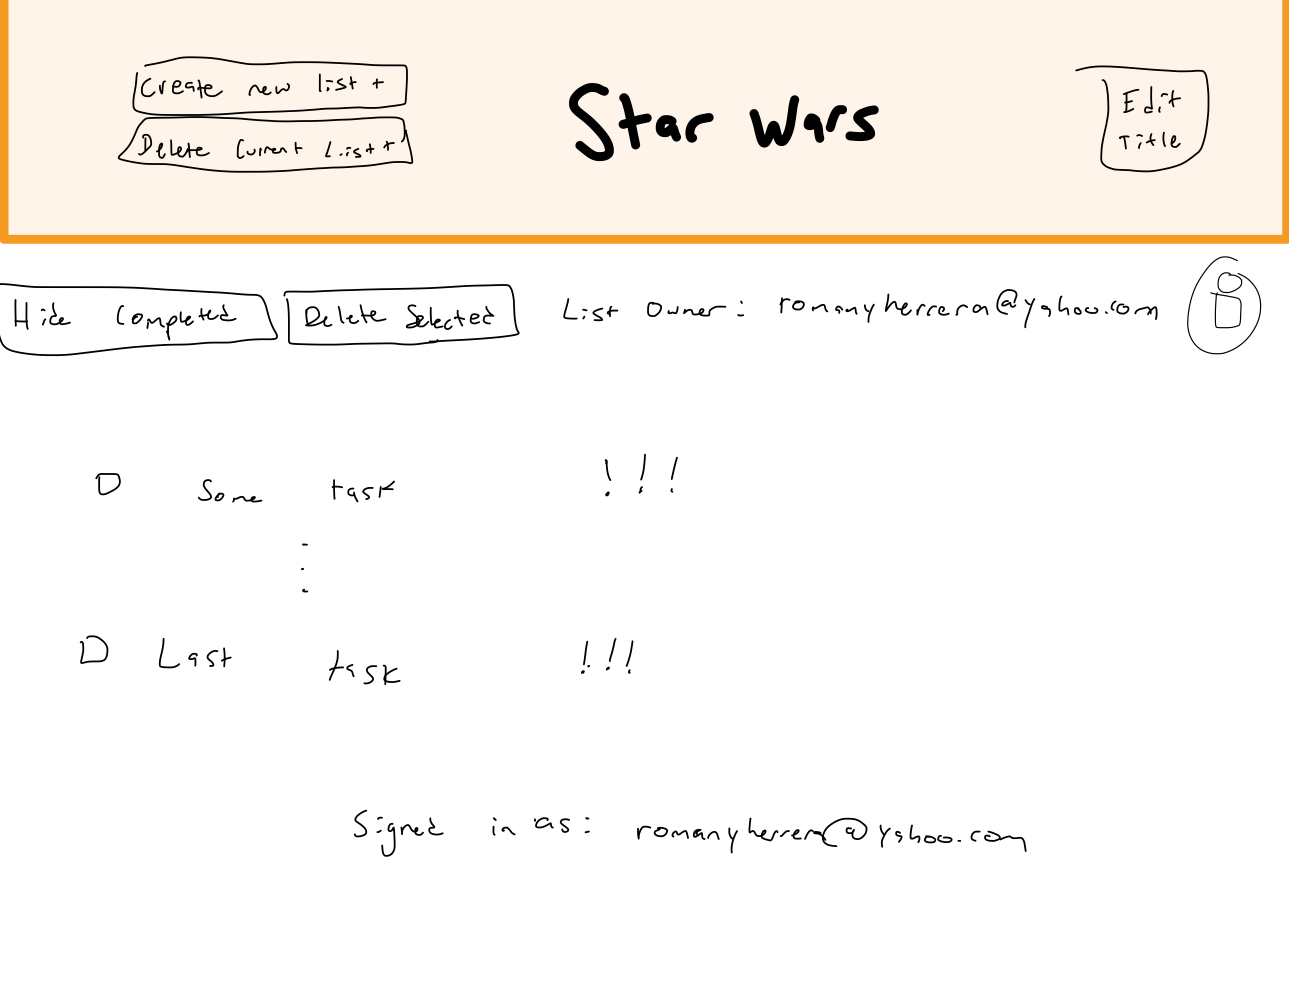 Create new list +
Delete Current List +
Star Wars
Edit
Title
Hide Completed
Delete Selected
List Owner: romanyherrera@yahoo.com
i
Some task !!!
Last task !!!
Signed in as: romanyherrera@yahoo.com